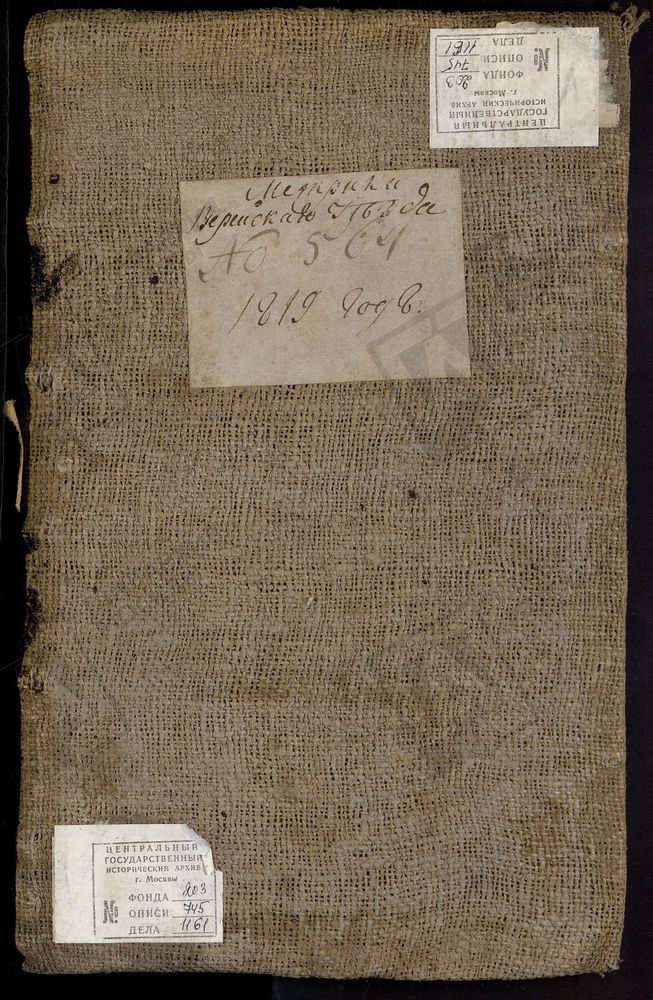 ЦЕНТРАЛЬНЫЙ
ГОСУДАРСТВЕННЫЙ
ИСТОРИЧЕСКИЙ АРХИВ
г. Москвы
ФОНДА 203
№ ОПИСИ 745
ДЕЛА 1161
Метрики
Верейскаго Уѣзда
No 564
1819 годъ.
ЦЕНТРАЛЬНЫЙ
ГОСУДАРСТВЕННЫЙ
ИСТОРИЧЕСКИЙ АРХИВ
г. Москвы
ФОНДА 203
№ ОПИСИ 745
ДЕЛА 1161